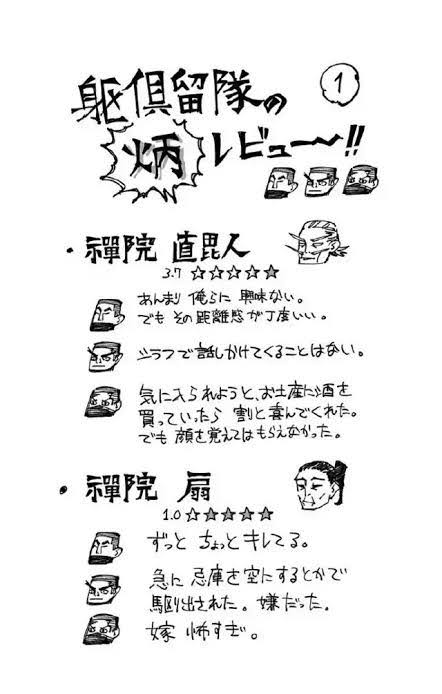 躯倶留隊の
①
炳レビュー〜!!
・禪院 直毘人
3.7 ☆☆☆☆☆
あんまり俺らに興味ない。
でもその距離感が丁度いい。
シラフで話しかけてくることはない。
気に入られようと、お土産に酒を
買っていったら割と喜んでくれた。
でも顔を覚えてはもらえなかった。
・禪院 扇
1.0 ☆☆☆☆☆
ずっとちょっとキレてる。
急に忌庫を空にするとかで
駆り出された。嫌だった。
嫁怖すぎ。